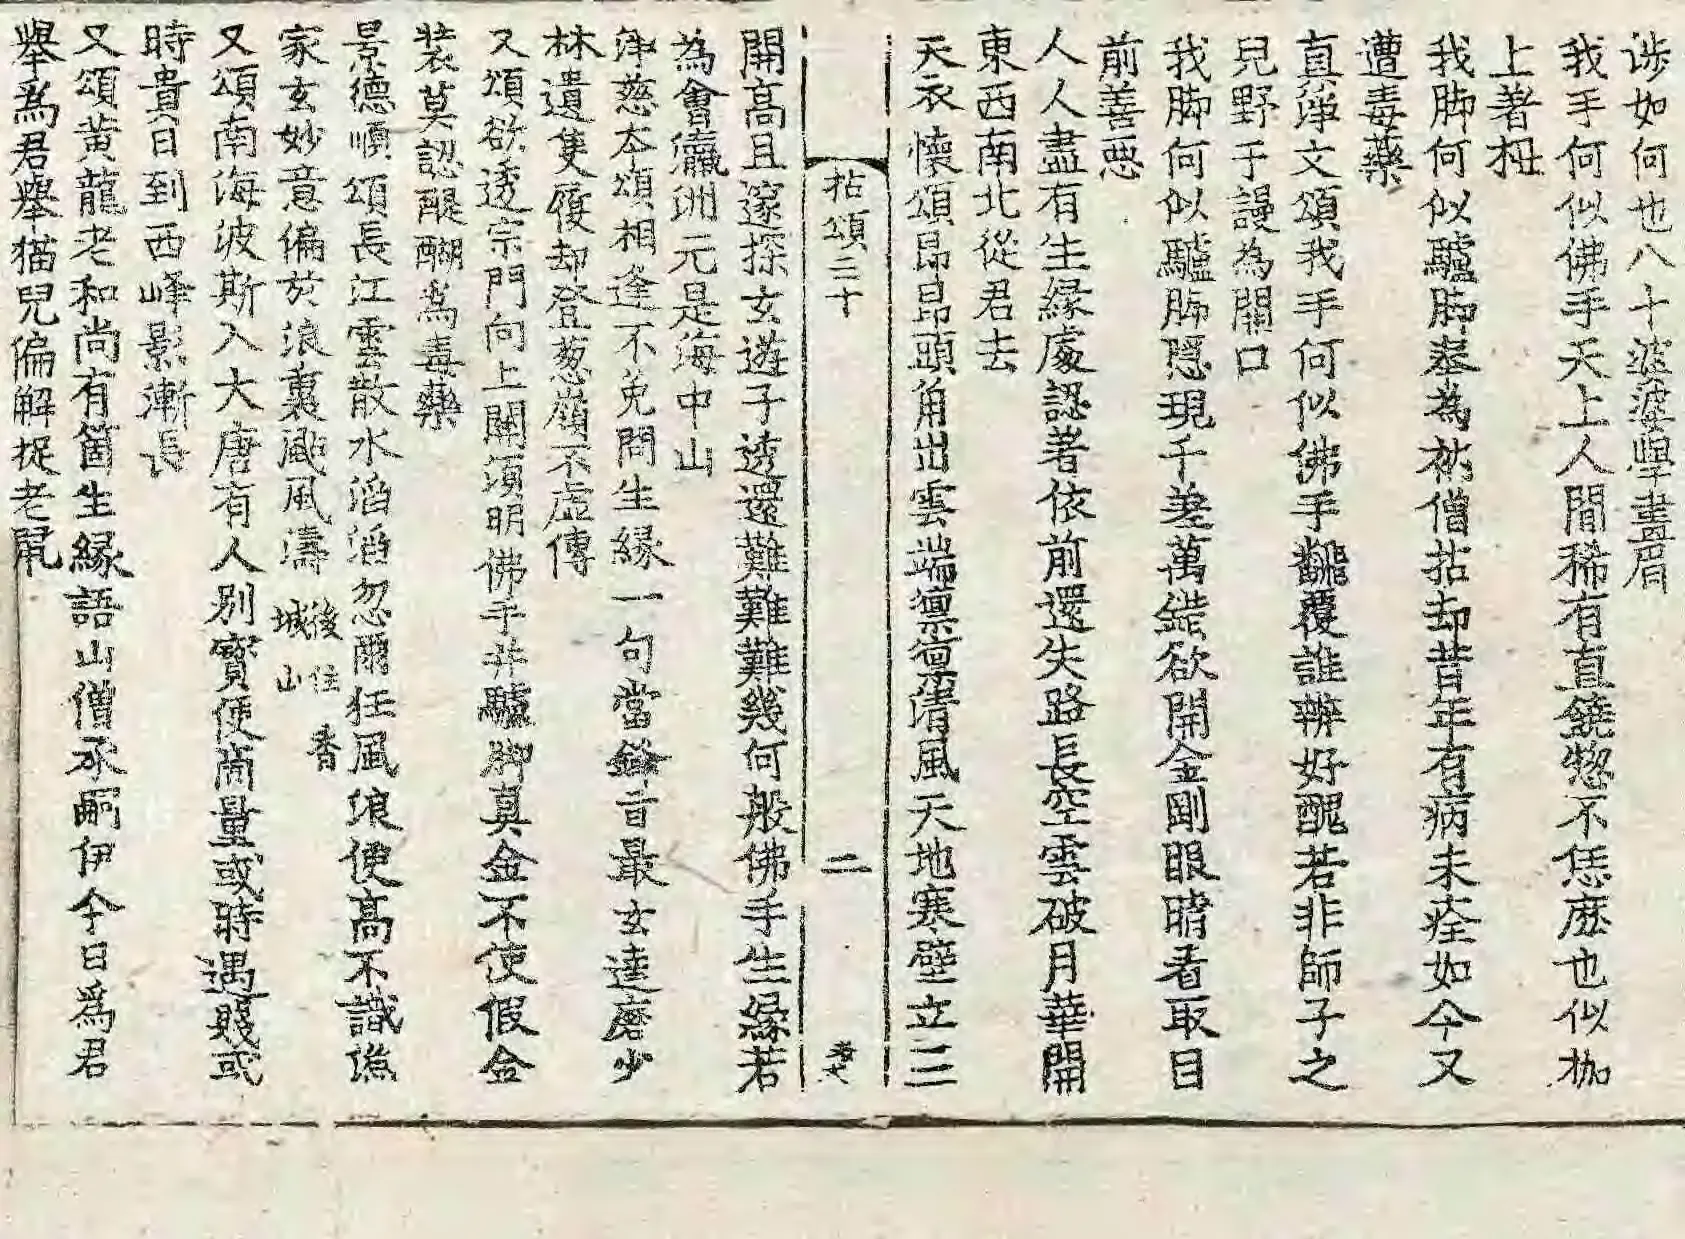 涉如何也八十婆婆學畫眉
我手何似佛手天上人間稀有直饒惣不恁麽也似枷
上著杻
我脚何似驢脚奉為衲僧拈却昔年有病未痊如今又
遭毒藥
真淨文頌我手何似佛手翻覆誰辨好醜若非師子之
兒野干謾為開口
我脚何似驢脚隱現千差萬錯欲開金剛眼睛看取目
前善惡
人人盡有生縁處認著依前還失路長空雲破月華開
東西南北從君去
天衣懷頌昂昂頭角出雲端凛凛清風天地寒壁立三
拈頌二十
二
開高且邃探玄遊子透還難難難幾何般佛手生縁若
為會瀛洲元是海中山
淨慈本頌相逢不免問生縁一句當鋒旨最玄達磨少
林遺隻履却登葱嶺不虚傳
又頌欲透宗門向上關須明佛手并驢脚真金不使假金
装莫認醍醐為毒藥
景德順頌長江雲散水滔滔忽爾狂風浪便高不識漁
家玄妙意偏於浪裏颭風濤
後住香
城山
又頌南海波斯入大唐有人别寳便商量或時遇賤或
時貴日到西峰影漸長
又頌黄龍老和尚有箇生縁語山僧承嗣伊今日爲君
舉爲君舉猫兒偏解捉老鼠